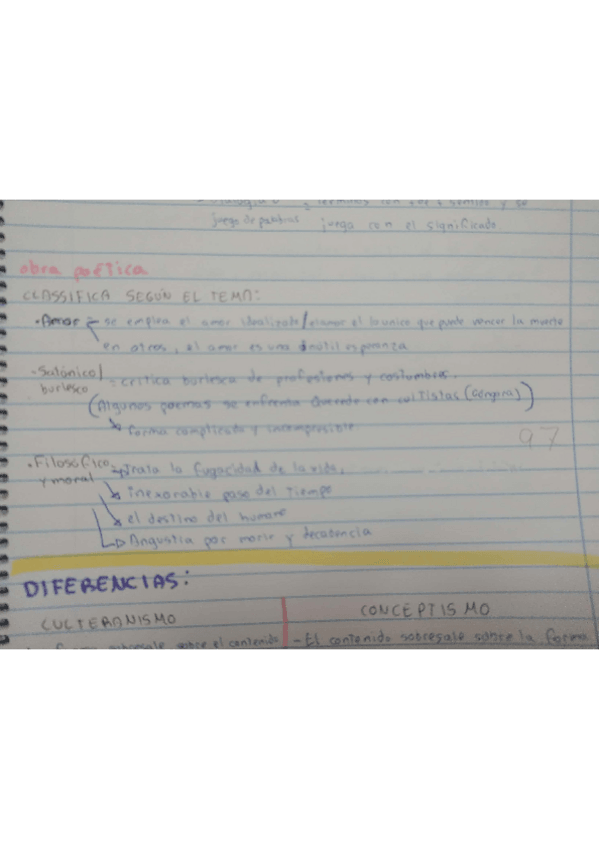 términos con dos o sentido y se
juego de palabras juega con el significado.
obra poética
CLASSIFICA SEGÚN EL TEMA:
• Amor = se emplea el amor idealizado/el amor el lo unico que puede vencer la muerte
en otros, el amor es una inútil esperanza
burlesco : critica burlesca de profesiones y costumbres.
(Algunos poemas se enfrenta Quevedo con cultistas (Góngora))
forma complicada y
97
• Filosófico y moral = Trata la fugacidad de la vida.
inexorable paso del tiempo
el destino del humano
Angustia por morir y decadencia
DIFERENCIAS:
CULTERANISMO
CONCEPTISMO
sobresale sobre el contenido
- El contenido sobresale sobre la forma